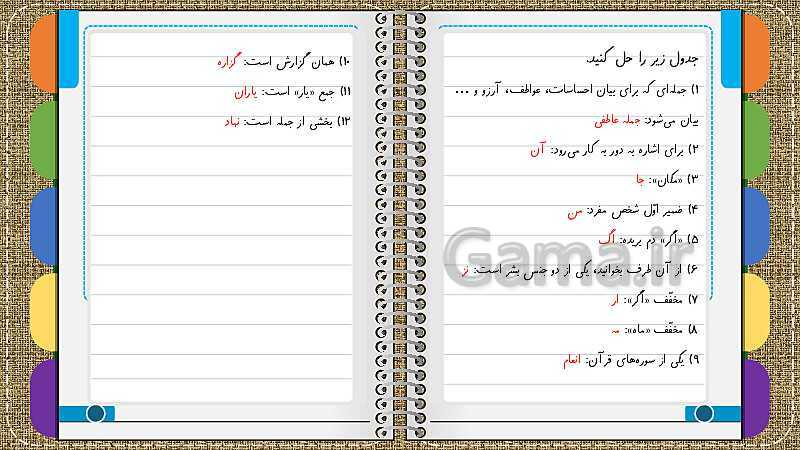 جدول زیر را حل کنید.
۱) جمله‌ای که برای بیان احساسات، عواطف، آرزو و ...
بیان می‌شود: جمله عاطفی
۲) برای اشاره به دور به کار می‌رود: آن
۳) «مکان»: جا
۴) ضمیر اوّل شخص مفرد: من
۵) «اگر» دم بریده: اگ
۶) از آن طرف بخوانید، یکی از دو جنس بشر است: نز
۷) مخفّف «اگر»: ار
۸) مخفّف «ماه»: مه
۹) یکی از سوره‌های قرآن: انعام
۱۰) همان گزارش است: گزاره
۱۱) جمع «یار» است: یاران
۱۲) بخشی از جمله است: نهاد
Gama.ir